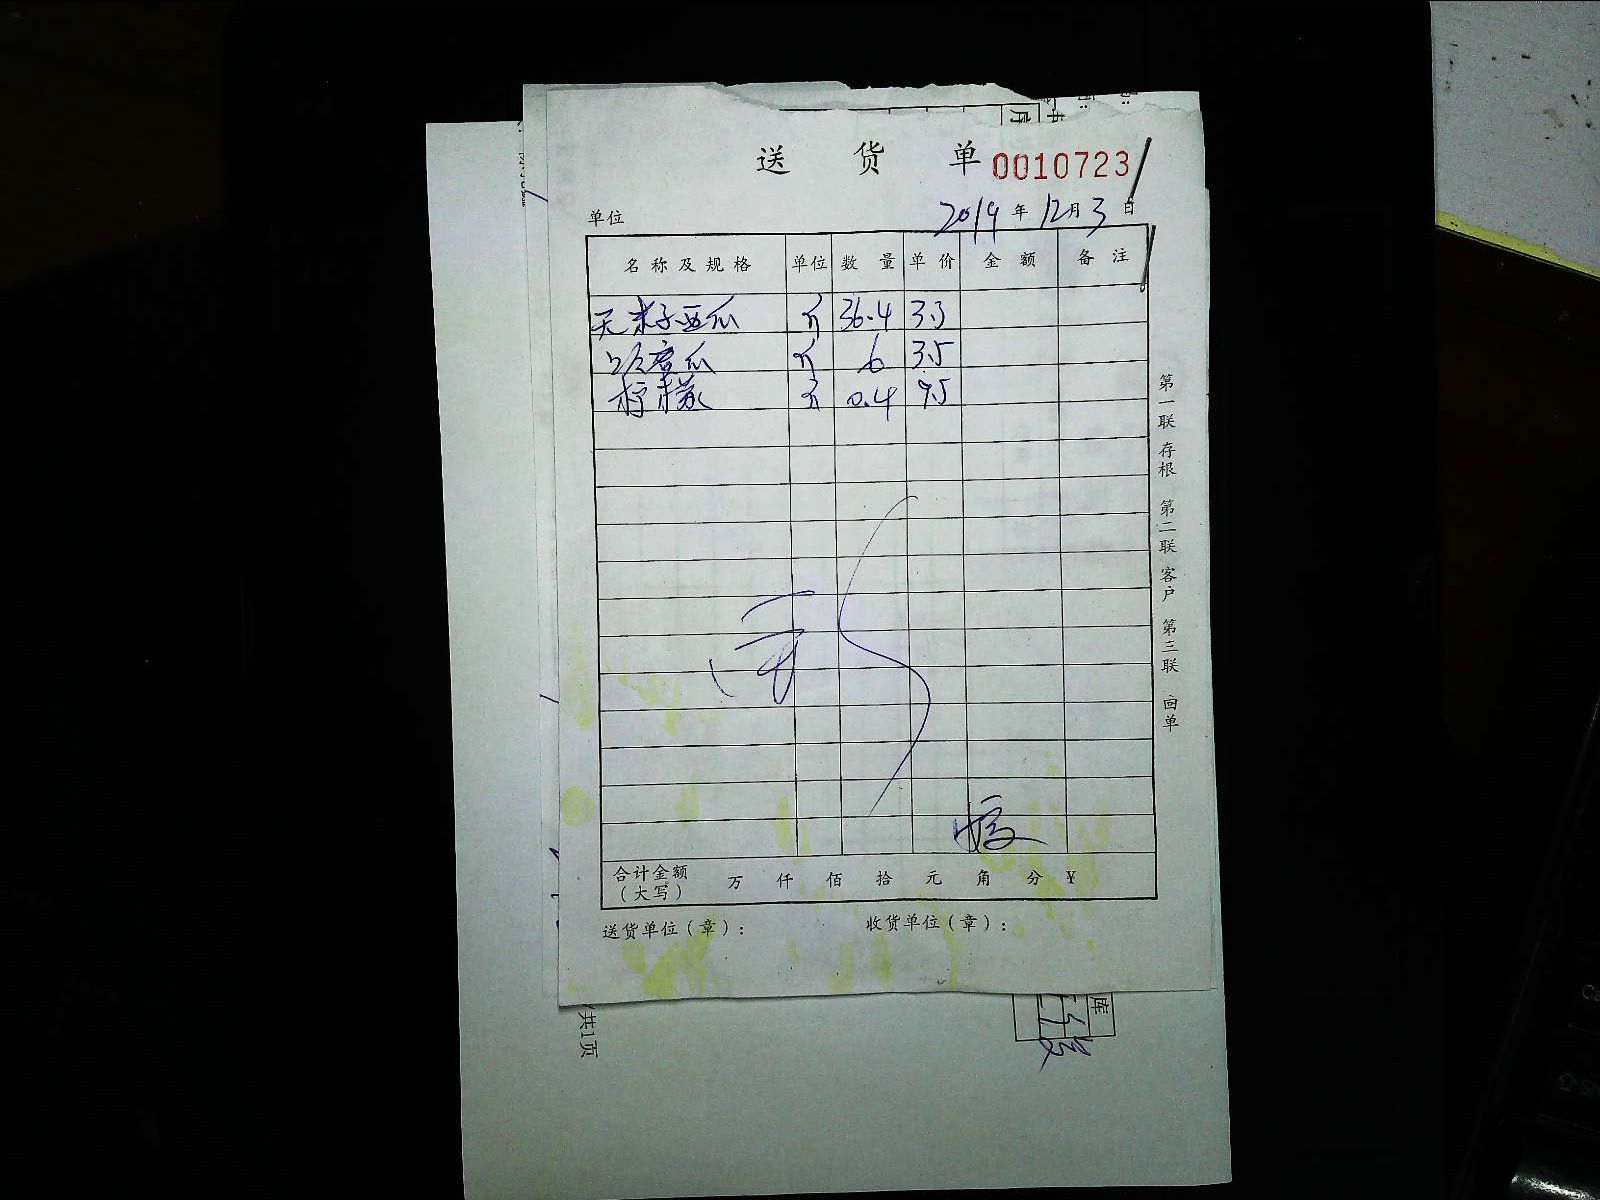 送 货 单 0010723
单位 2019 年 12 月 3 日
名称及规格 单位 数量 单价 金额 备注
无籽西瓜 斤 36.4 3.3
哈密瓜 斤 6 3.5
柠檬 斤 0.4 9.5
合计金额（大写） 万 仟 佰 拾 元 角 分 ¥
送货单位（章）： 收货单位（章）：
第一联 存根 第二联 客户 第三联 回单
共1页
库